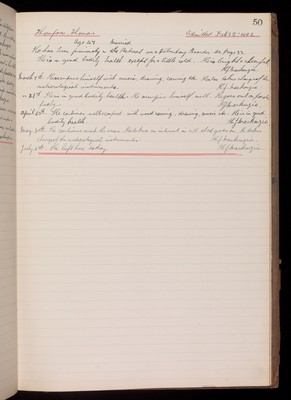 50
Thompson Thomas Admitted Feb 15th 1902
Age 47 Married
He has been previously in the Retreat as a Voluntary Boarder see Page 33
He is in good bodily health except for a little cold. He is bright & cheerful
H J Mackenzie
March 7th. He amuses himself with music, drawing, carving etc. He also takes charge of the
meteorological instruments. H J Mackenzie
" 21st He is in good bodily health. He occupies himself well. He goes out
H J Mackenzie
April He continues with wood carving, drawing, music etc. He is in good
bodily health. H J Mackenzie
May He continues much the same. He takes an interest in He takes
charge of the meteorological instruments. H J Mackenzie
July He left here today. H J Mackenzie